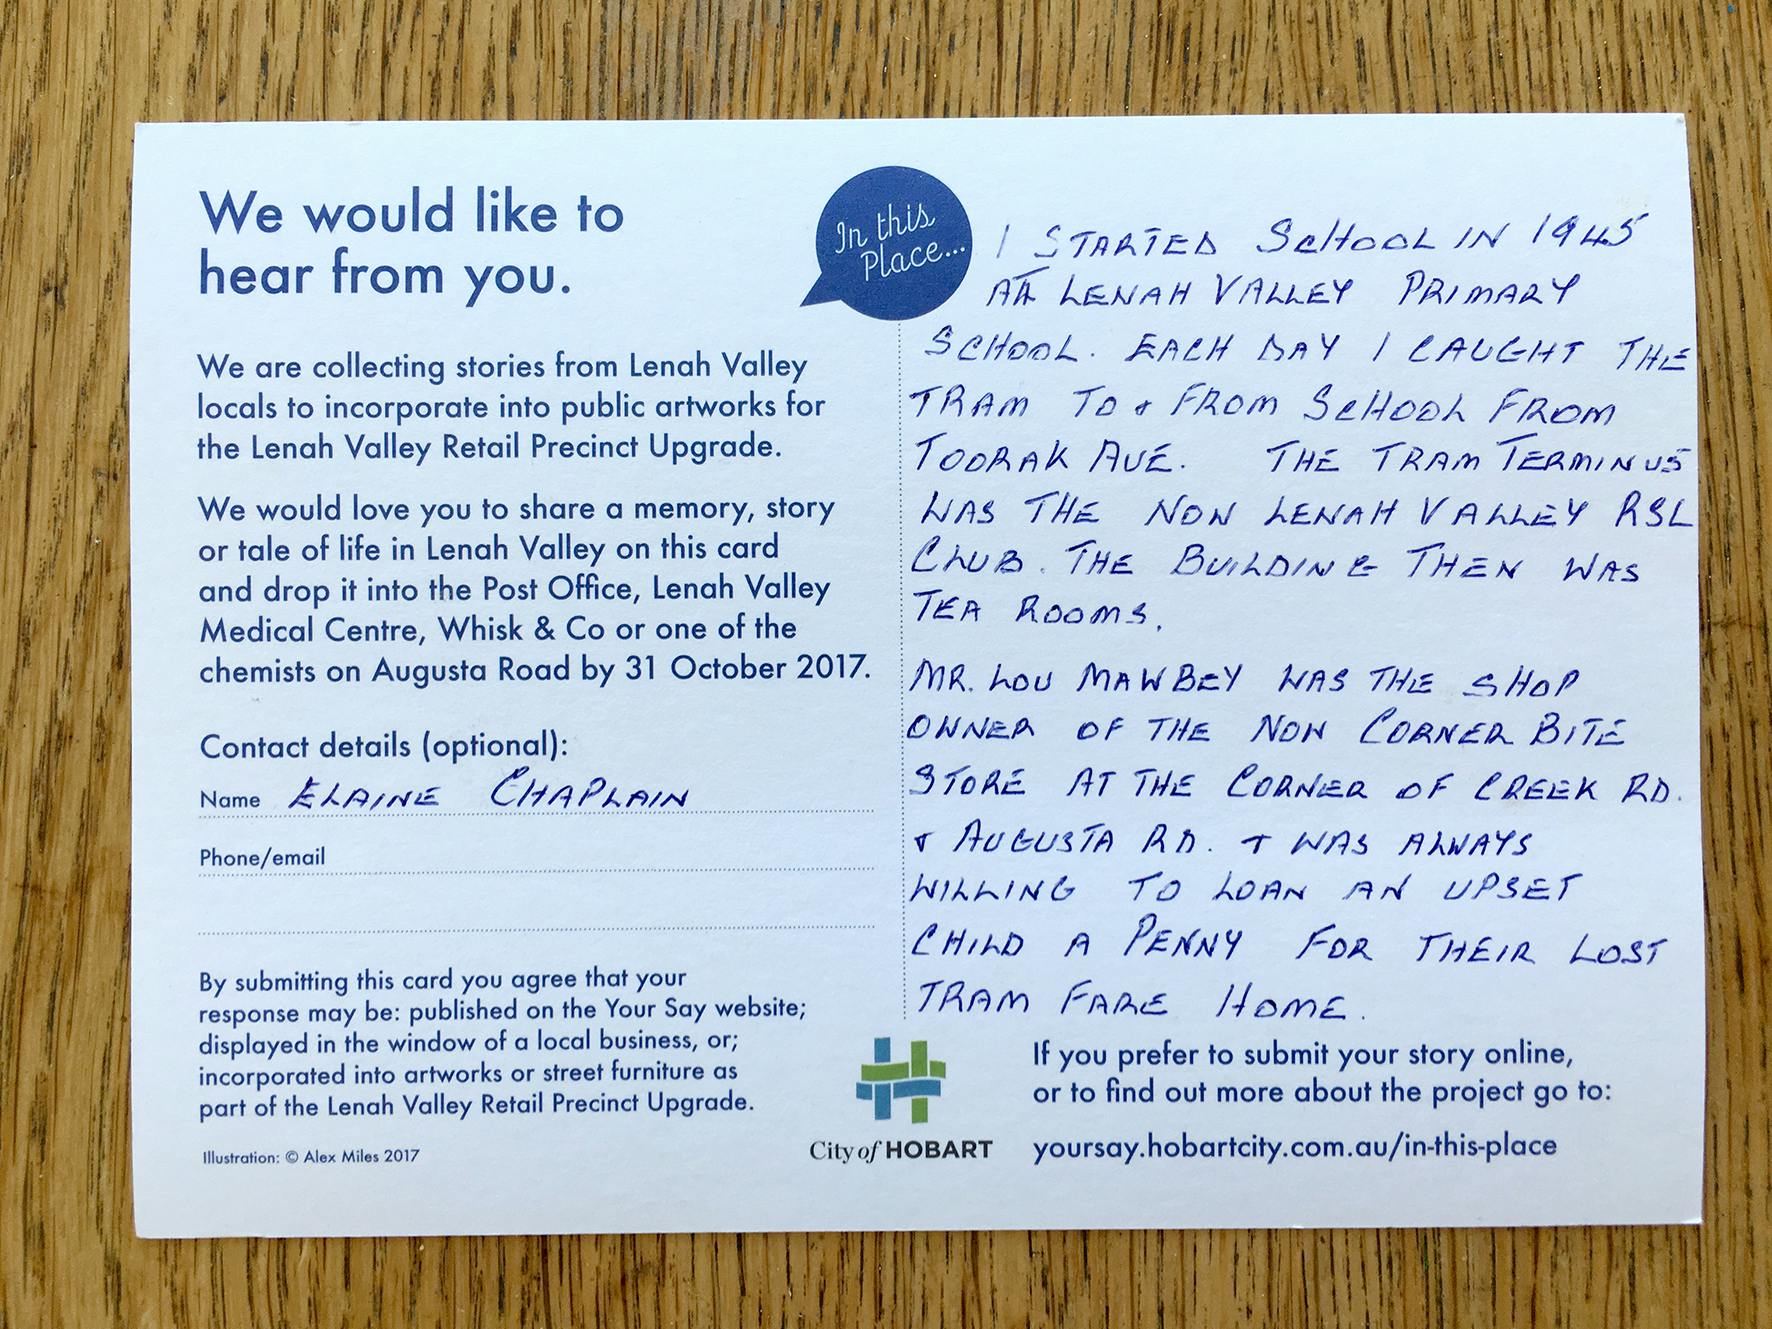 We would like to
hear from you.
We are collecting stories from Lenah Valley
locals to incorporate into public artworks for
the Lenah Valley Retail Precinct Upgrade.
We would love you to share a memory, story
or tale of life in Lenah Valley on this card
and drop it into the Post Office, Lenah Valley
Medical Centre, Whisk & Co or one of the
chemists on Augusta Road by 31 October 2017.
Contact details (optional):
Name ELAINE CHAPLAIN
Phone/email
By submitting this card you agree that your
response may be: published on the Your Say website;
displayed in the window of a local business, or;
incorporated into artworks or street furniture as
part of the Lenah Valley Retail Precinct Upgrade.
Illustration: © Alex Miles 2017
In this
Place...
I STARTED SCHOOL IN 1945
AT LENAH VALLEY PRIMARY
SCHOOL. EACH DAY I CAUGHT THE
TRAM TO & FROM SCHOOL FROM
TOORAK AVE. THE TRAM TERMINUS
WAS THE NOW LENAH VALLEY RSL
CLUB. THE BUILDING THEN WAS
TEA ROOMS.
MR. LOU MAWBEY WAS THE SHOP
OWNER OF THE NOW CORNER BITE
STORE AT THE CORNER OF CREEK RD.
& AUGUSTA RD. & WAS ALWAYS
WILLING TO LOAN AN UPSET
CHILD A PENNY FOR THEIR LOST
TRAM FARE HOME.
City of HOBART
If you prefer to submit your story online,
or to find out more about the project go to:
yoursay.hobartcity.com.au/in-this-place